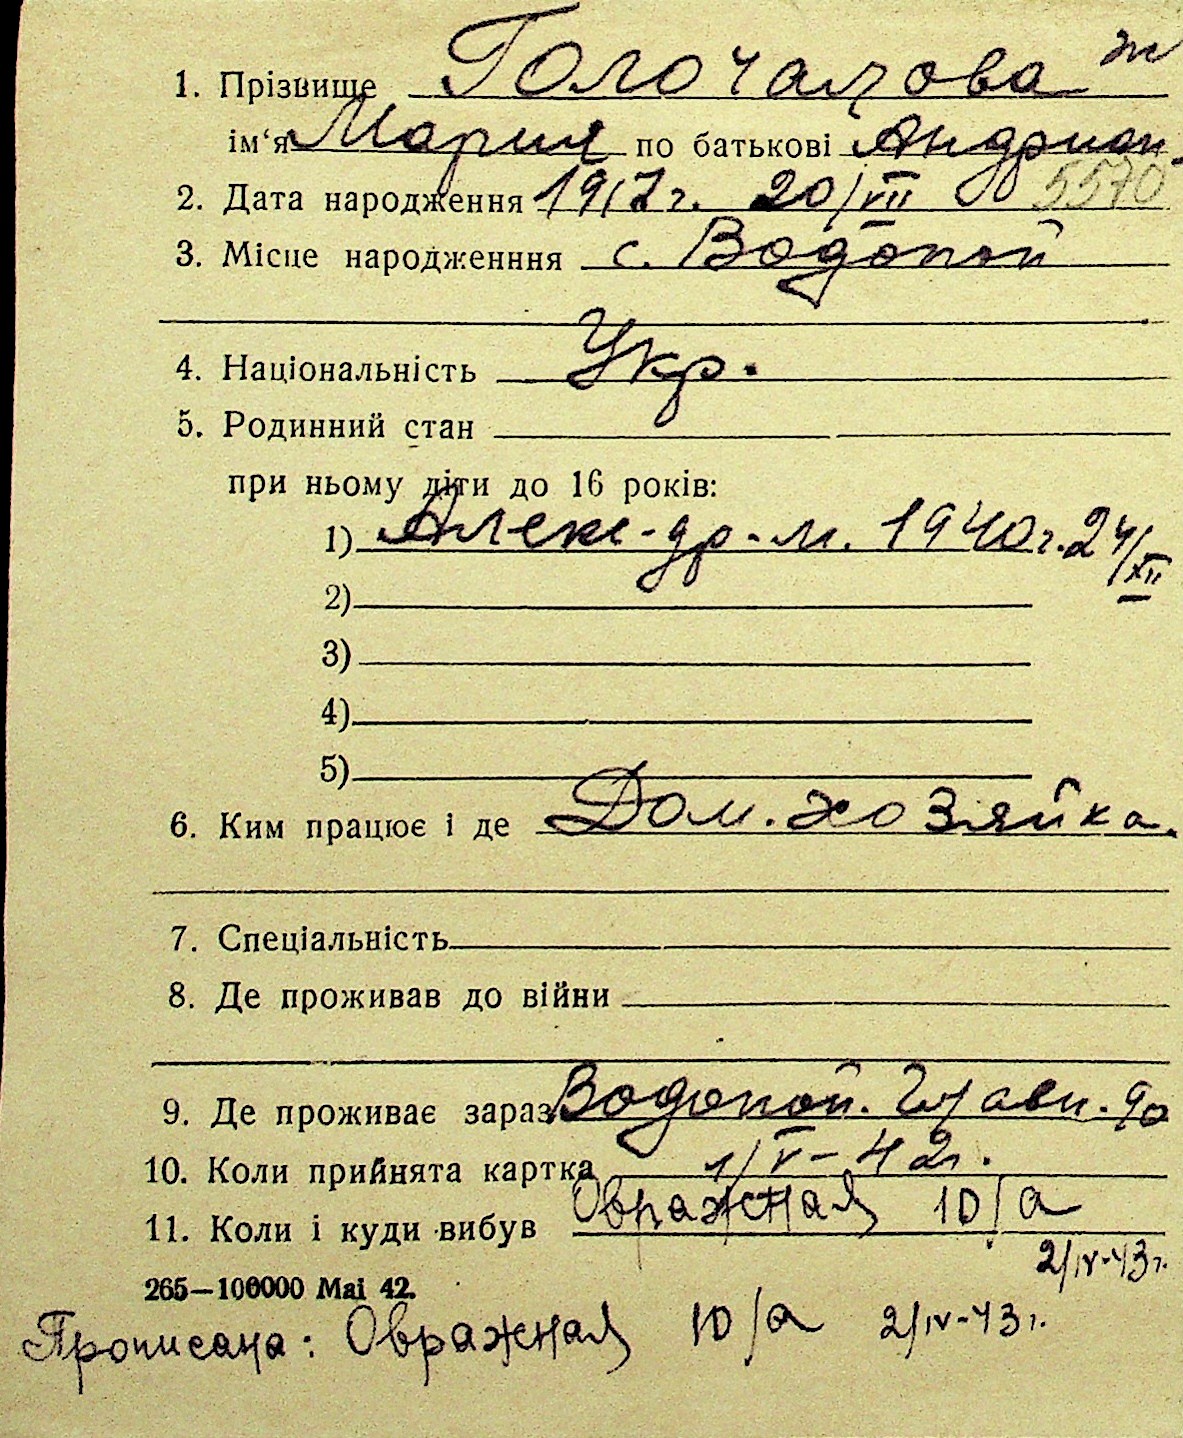 ж
1. Прізвище Голочалова
ім‘я Мария по батькові Андриан.
2. Дата народження 1917 г. 20/VII 5570
3. Місце народженння с. Водопой
4. Національність Укр.
5. Родинний стан
при ньому діти до 16 років:
1) Алекс-др-м. 1940 г. 24/XII
2)
3)
4)
5)
6. Ким працює і де Дом. хозяйка.
7. Спеціальність
8. Де проживав до війни
9. Де проживає зараз Водопой. 90
10. Коли прийнята картка 1/V-42 г.
11. Коли і куди вибув Овражная 10/а
2/IV-43 г.
265—100000 Mai 42.
Прописана: Овражная 10/а 2/IV-43 г.